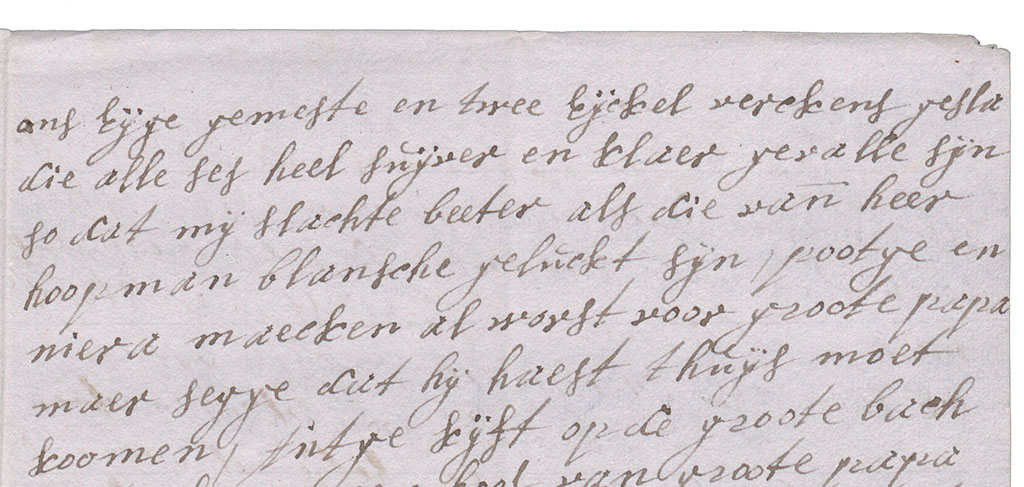 ons eyge gemeste en twee eyckel verckens gesla
die alle ses heel suyver en klaer gevalle syn
so dat my slachte beeter als die van heer
koopman blansche geluckt syn, pootge en
niera maecken al worst voor groote papa
maer segge dat hy haest thuys moet
koomen, kyft op de groote bach
van groote papa